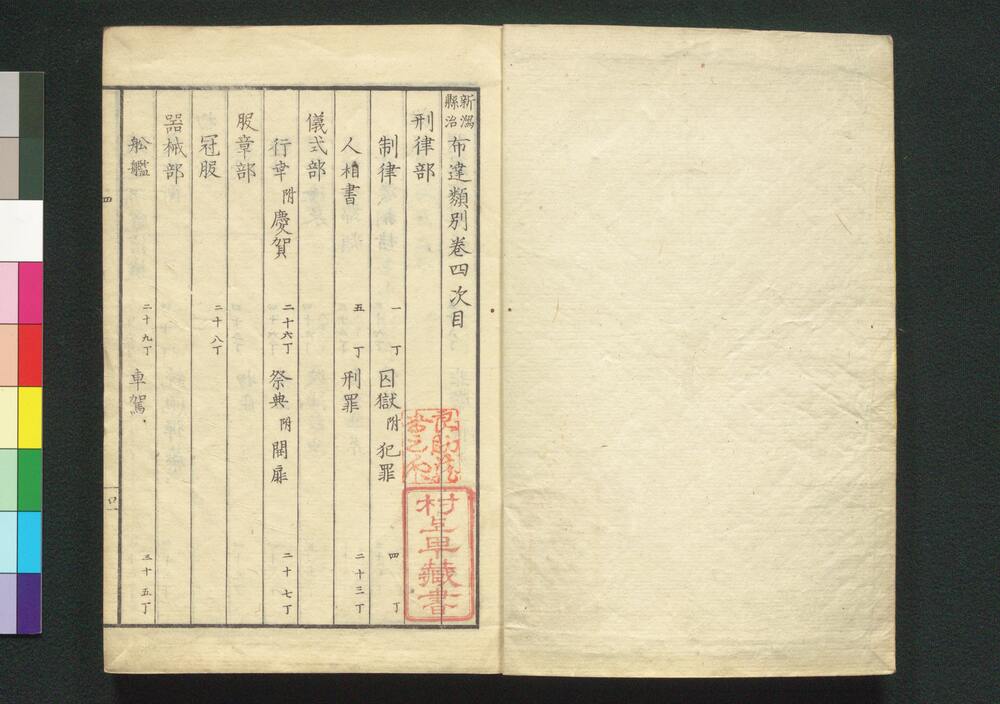 新潟縣治布達類別卷四次目
刑律部
制律 一丁 囚獄附犯罪 四丁
人相書 五丁 刑罪 二十三丁
儀式部
行幸附慶賀 二十六丁 祭典附開扉 二十七丁
服章部
冠服 二十八丁
器械部
舩艦 二十九丁 車駕 三十五丁
村上早藏書